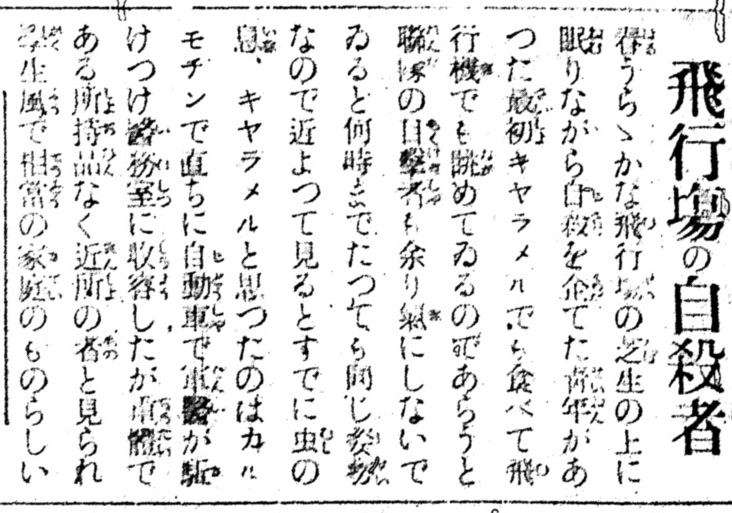 飛行場の自殺者
春うらゝかな飛行場の芝生の上に
眠りながら自殺を企てた青年があ
つた最初キヤラメルでも食べて飛
行機でも眺めてゐるのであらうと
聯隊の目撃者も余り氣にしないで
ゐると何時までたつても同じ姿勢
なので近よつて見るとすでに虫の
息、キヤラメルと思つたのはカル
モチンで直ちに自動車で軍醫が駈
けつけ醫務室に收容したが重體で
ある所持品なく近所の者と見られ
學生風で相當の家庭のものらしい